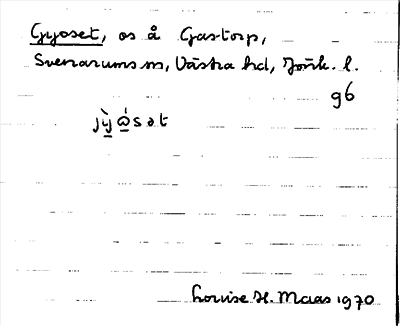 Gyoset, os å Gastorp,
Svenarums sn, Västra hd, Jönk. l.
g6
Louise H. Maas 1970